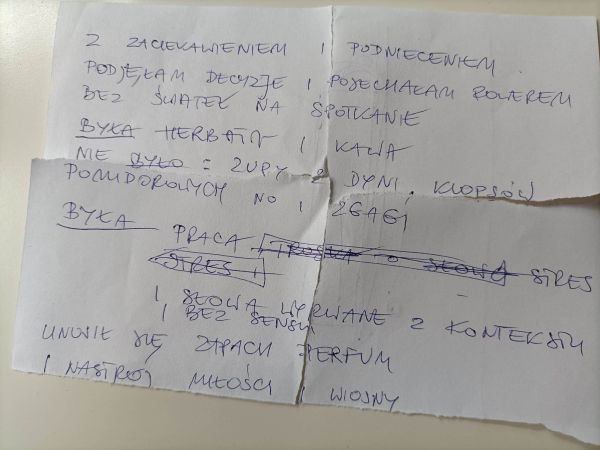 Z ZACIEKAWIENIEM I PODNIECENIEM
PODJĘŁAM DECYZJE I POJECHAŁAM ROWEREM
BEZ ŚWIATEŁ NA SPOTKANIE
BYŁA HERBATA I KAWA
NIE BYŁO = ZUPY Z DYNI, KLOPSÓW
POMIDOROWYCH NO I ZGAGI
BYŁA PRACA TROSKA O SŁOWA STRES
STRES I
I SŁOWA WYRWANE Z KONTEKSTU
I BEZ SENSU
UNOSIŁ SIĘ ZAPACH PERFUM
I NASTRÓJ MIŁOŚCI I WIOSNY